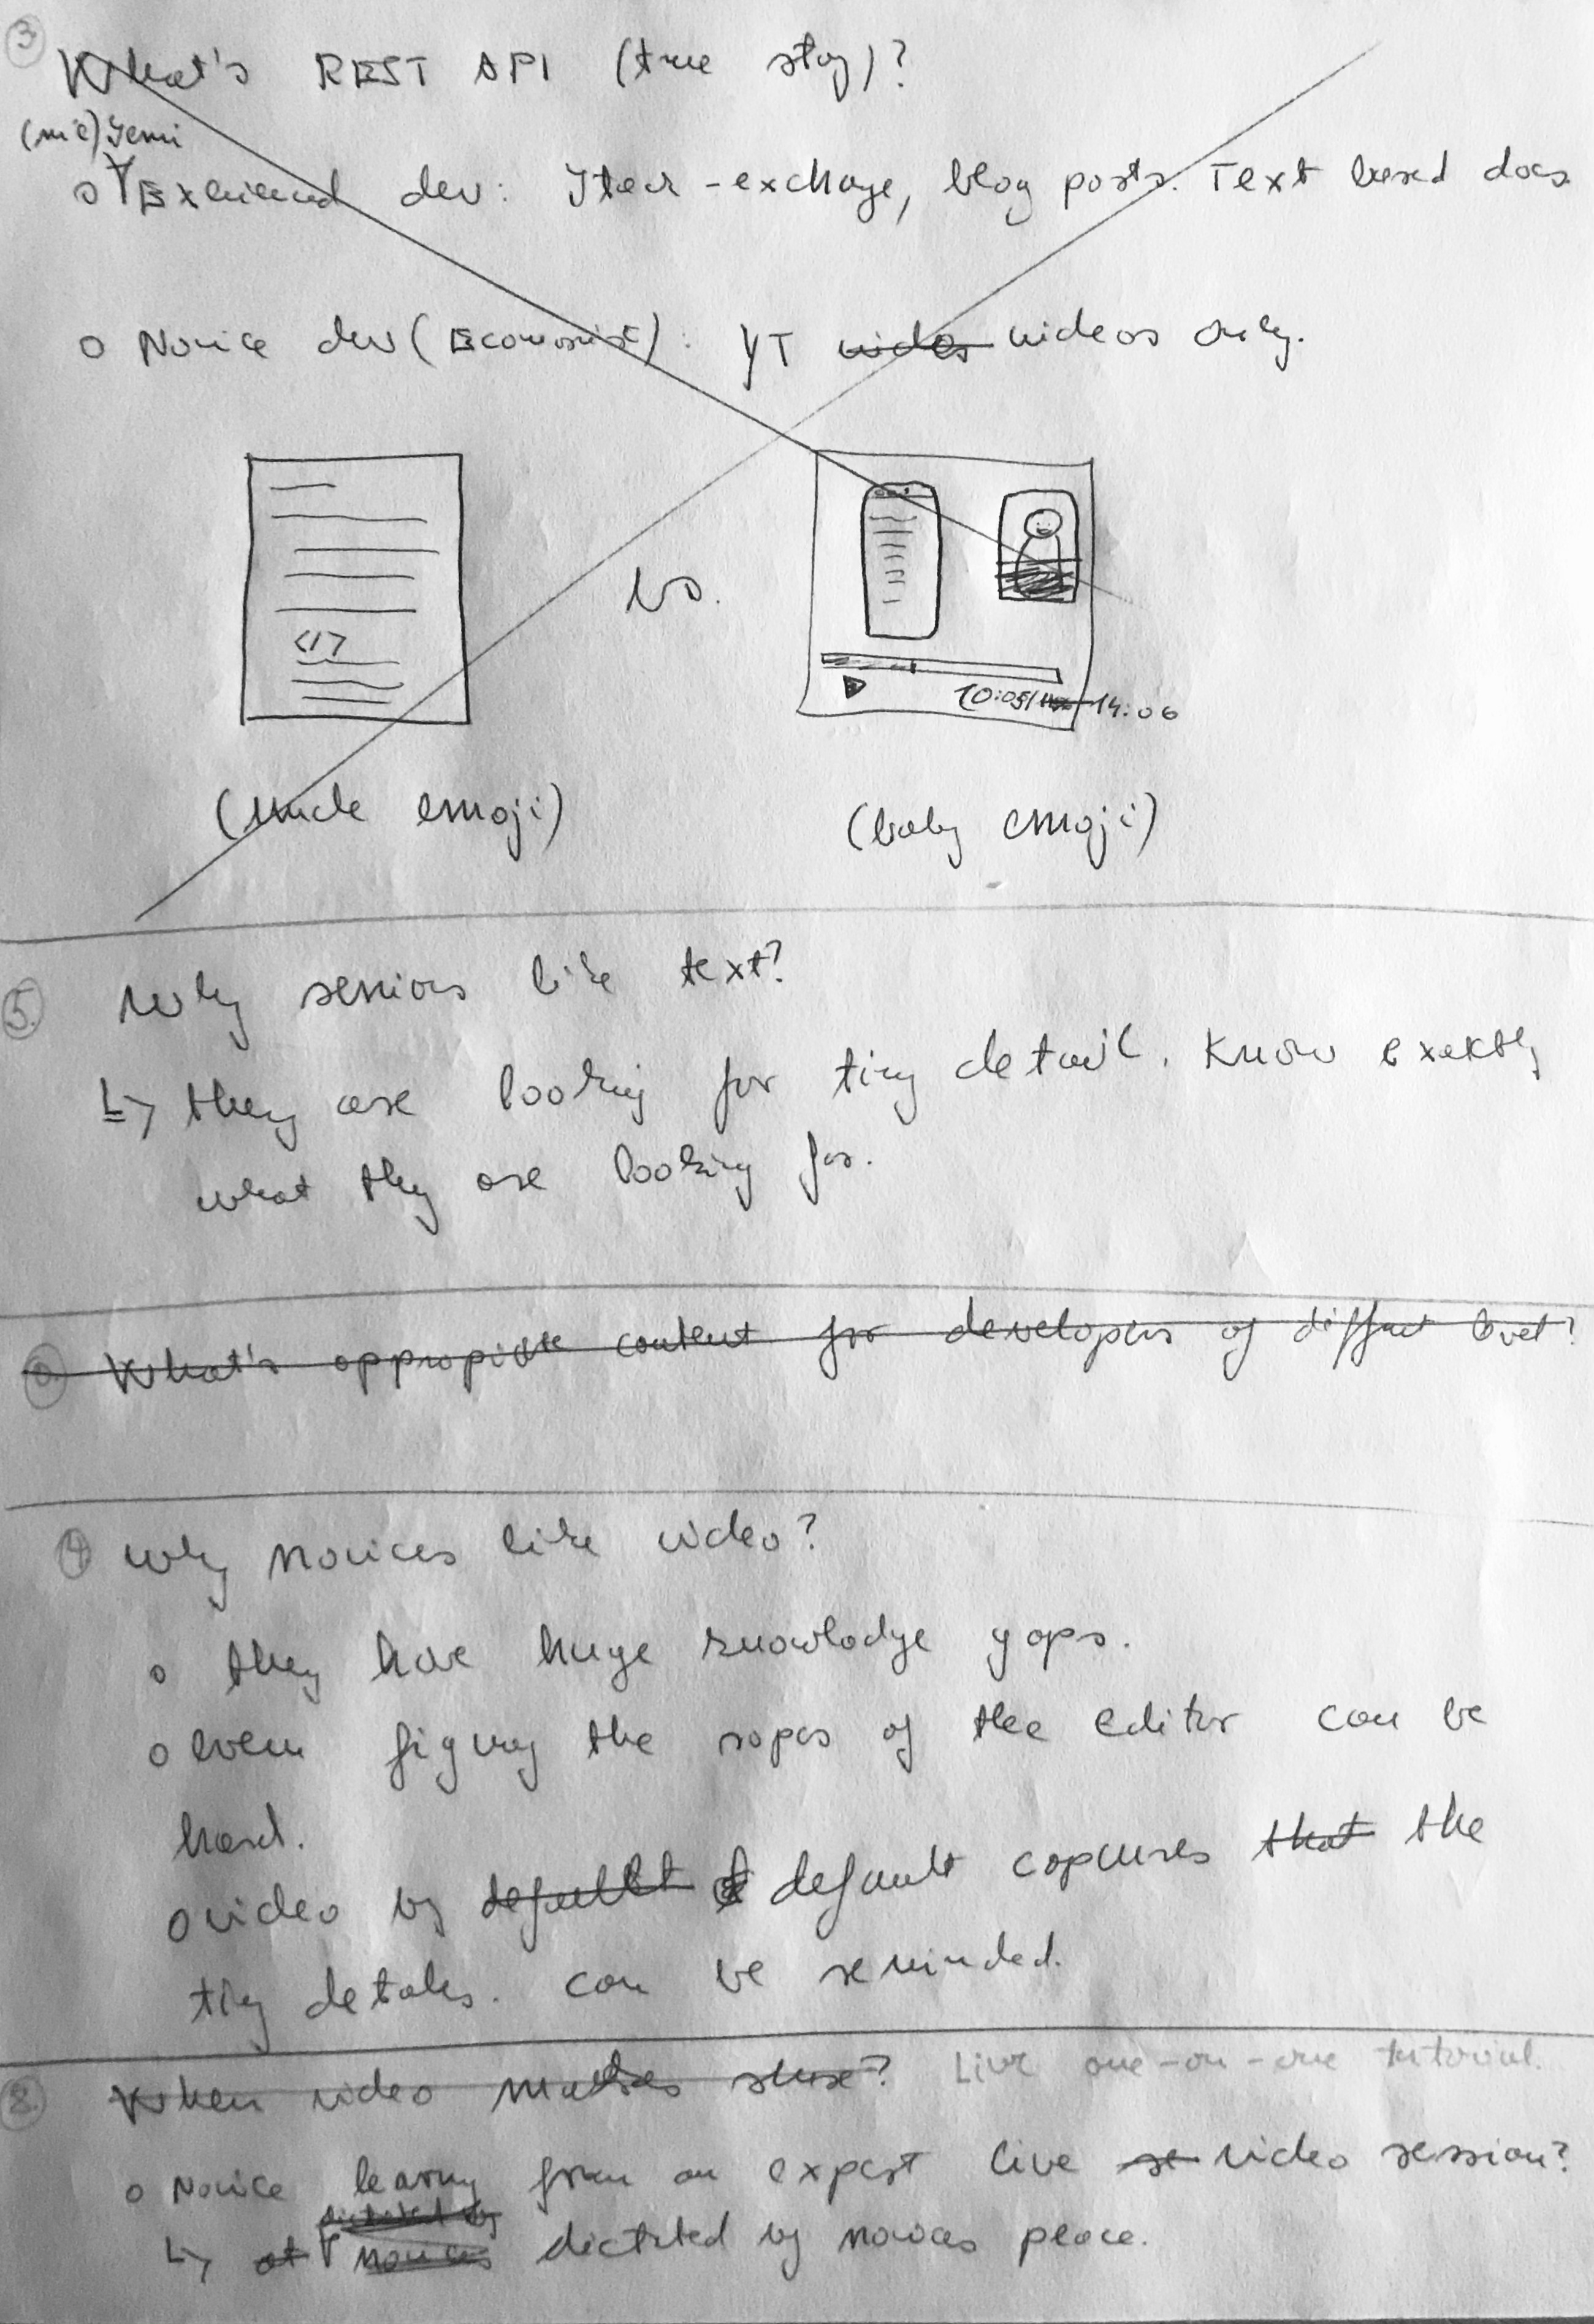 3
What's REST API (true stoy)?
(me) Semi
o Exerienced dev: Stack-exchange, blog posts. Text based docs
o Novice dev (Economist): YT video videos only.
</>
vs.
10:05/ 14:06
(uncle emoji)
(baby emoji)
5. Why seniors like text?
↳ they are looking for tiny detail. Know exaktly
what they are looking for.
What's appropiate content for developers of diffrent level?
4 why novices like video?
o they have huge knowladge gaps.
o even figuring the ropes of the editor can be
hard.
o video by default default captures that the
tiny details. can be reminded.
8. When video makes sense? Live one-on-one tutorial.
o Novice learning from an expert live se video session?
dictated by
↳ at novices dictated by novices peace.